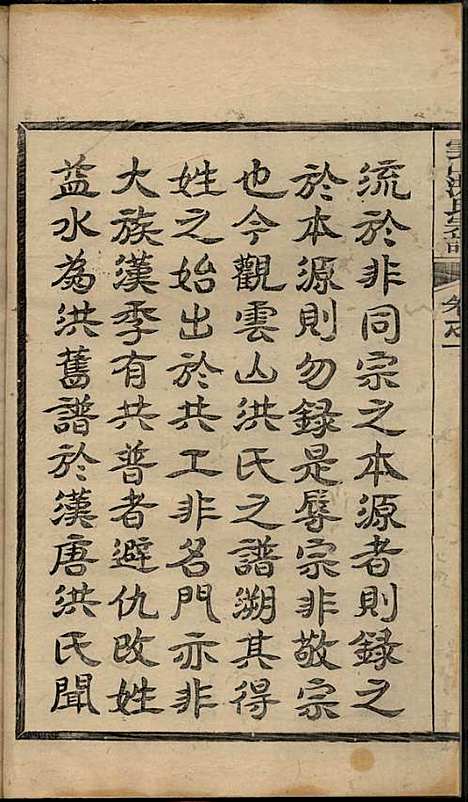 流於非同宗之本源者則録之
於本源則勿録是辱宗非敬宗
也今觀雲山洪氏之譜溯其得
姓之始出於共工非名門亦非
大族漢季有共普者避仇改姓
益水為洪舊譜於漢唐洪氏聞